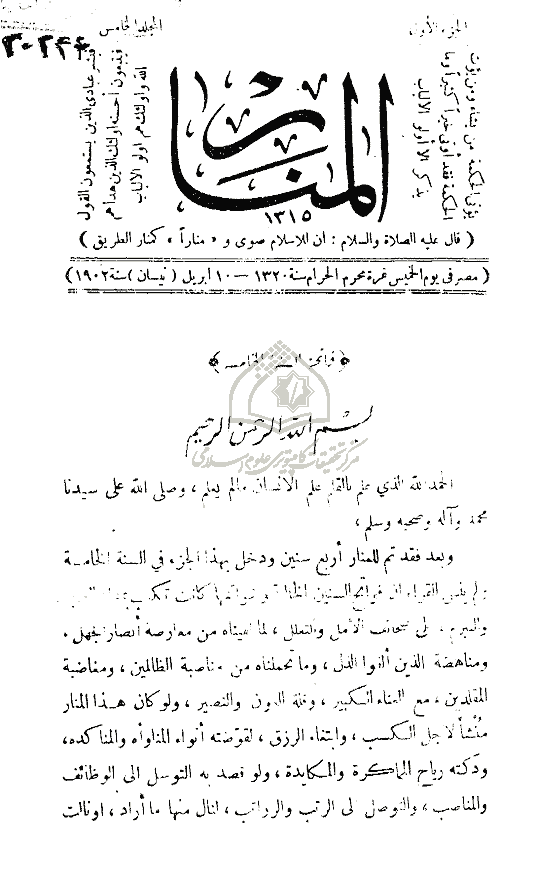 الجزء الأول
المجلد الخامس
٣٠٢٤٤
يؤتي الحكمة من يشاء ومن يؤت
الحكمة فقد أوتي خيراً كثيراً وما
يذكر الا أولو الالباب
المنار
١٣١٥
فبشر عبادي الذين يستمعون القول
فيتبعون أحسنه أولئك الذين هداهم
الله وأولئك هم أولو الالباب
( قال عليه الصلاة والسلام : ان للاسلام صوى و « مناراً » كمنار الطريق )
( مصر في يوم الخميس غرة محرم الحرام سنة ١٣٢٠ — ١٠ ابريل ( نيسان ) سنة ١٩٠٢ )
﴿ فاتحة السنة الخامسة ﴾
بسم الله الرحمن الرحيم
مركز تحقيقات كامپيوترى علوم اسلامى
الحمد لله الذي علم بالقلم علم الانسان مالم يعلم ، وصلى الله على سيدنا
محمد وآله وصحبه وسلم ،
وبعد فقد تم للمنار أربع سنين ودخل بهذا الجزء في السنة الخامسة
القراء ان فواتح السنين كانت تكتب
على صحائف الأمل والتعلل ، لما لقيناه من معارضة أنصار الجهل ،
ومناهضة الذين ألفوا الذل ، وما تحملناه من مناصبة الظالمين ، ومغاضبة
المقلدين ، مع العناء الكبير ، وقلة العون والنصير ، ولو كان هذا المنار
مُنْشأ لاجل الكسب ، وابتغاء الرزق ، لقوضته أنواء المناوأه والمناكده،
ودكته رياح المماكرة والمكايدة ، ولو قصد به التوسل الى الوظائف
والمناصب ، والتوصل الى الرتب والرواتب ، لنال منها ما أراد ، اونالت